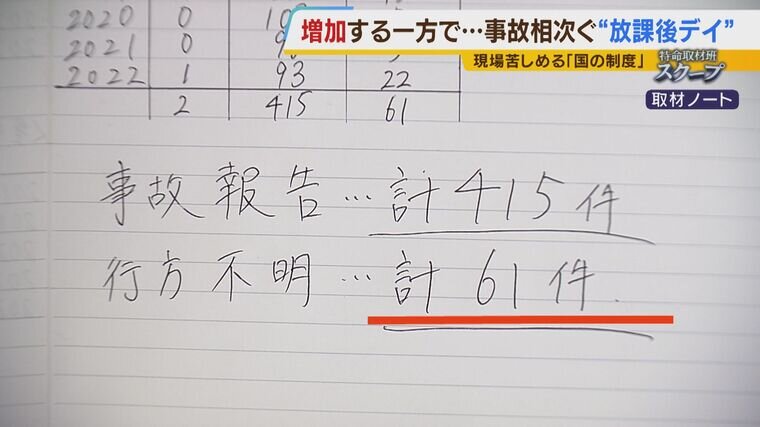 増加する一方で…事故相次ぐ“放課後デイ”
現場苦しめる「国の制度」 特命取材班 スクープ
取材ノート
2020 0
2021 0
2022 1 93 22
2 415 61
事故報告…計415件
行方不明…計61件.